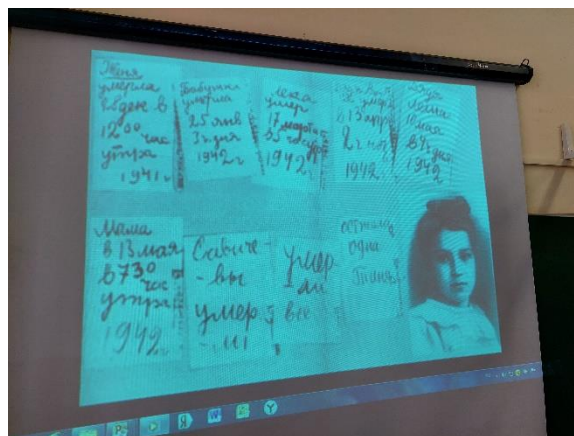 Женя
умерла
28 дек в
12 00 час
утра
1941 г
Бабушка
умерла
25 янв
3 ч. дня
1942 г
Лека
умер
17 марта
в 5 час утр
1942 г
умер
в 13 апр
2 ч ноч
1942 г
Дядя
Леша
10 мая
в 4 ч дня
1942 г
Мама
в 13 мая
в 7 30
час
утра
1942 г
Савиче-
-вы
умер-
-ли
умер
ли
все
осталась
одна
Таня